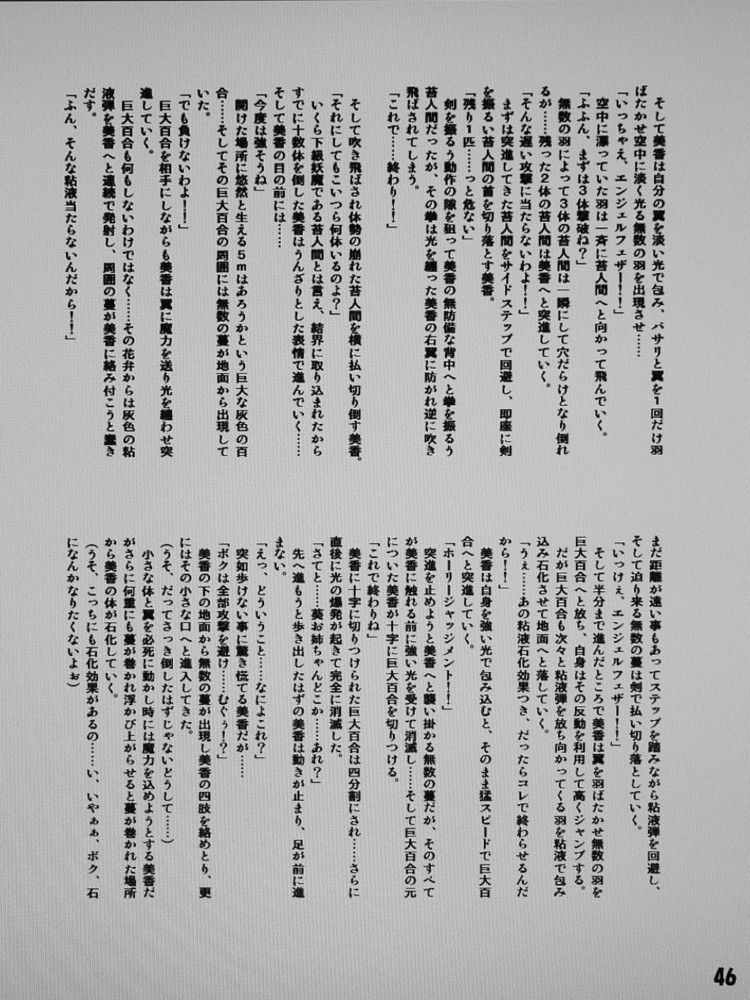 そして美香は自分の翼を淡い光で包み、バサリと翼を1回だけ羽
ばたかせ空中に淡く光る無数の羽を出現させ……
「いっちゃえ、エンジェルフェザー!!」
空中に漂っていた羽は一斉に苔人間へと向かって飛んでいく。
「ふふん、まずは3体撃破ね?」
無数の羽によって3体の苔人間は一瞬にして穴だらけとなり倒れ
るが……残った2体の苔人間は美香へと突進していく。
「そんな遅い攻撃に当たらないわよ!!」
まずは突進してきた苔人間をサイドステップで回避し、即座に剣
を振るい苔人間の首を切り落とす美香。
「残り1匹……っと危ない」
剣を振るう動作の隙を狙って美香の無防備な背中へと拳を振るう
苔人間だったが、その拳は光を纏った美香の右翼に防がれ逆に吹き
飛ばされてしまう。
「これで……終わり!!」
そして吹き飛ばされ体勢の崩れた苔人間を横に払い切り倒す美香。
「それにしてもこいつら何体いるのよ?」
いくら下級妖魔である苔人間とは言え、結界に取り込まれてから
すでに十数体を倒した美香はうんざりとした表情で進んでいく……
そして美香の目の前には……
「今度は強そうね」
開けた場所に悠然と生える5mはあろうかという巨大な灰色の百
合……そしてその巨大百合の周囲には無数の蔓が地面から出現して
いた。
「でも負けないわよ!!」
巨大百合を相手にしながらも美香は翼に魔力を送り光を纏わせ突
進していく。
巨大百合も何もしないわけではなく……その花弁からは灰色の粘
液弾を美香へと連続で発射し、周囲の蔓が美香に絡み付こうと蠢き
だす。
「ふん、そんな粘液当たらないんだから!!」
まだ距離が遠い事もあってステップを踏みながら粘液弾を回避し、
そして迫り来る無数の蔓は剣で払い切り落としていく。
「いっけぇ、エンジェルフェザー!!」
そして半分まで進んだところで美香は翼を羽ばたかせ無数の羽を
巨大百合へと放ち、自身はその反動を利用して高くジャンプする。
だが巨大百合も次々と粘液弾を放ち向かってくる羽を粘液で包み
込み石化させて地面へと落していく。
「うぇ……あの粘液石化効果つき、だったらコレで終わらせるんだ
から!!」
美香は自身を強い光で包み込むと、そのまま猛スピードで巨大百
合へと突進していく。
「ホーリージャッジメント!!」
突進を止めようと美香へと襲い掛かる無数の蔓だが、そのすべて
が美香に触れる前に強い光を受けて消滅し……そして巨大百合の元
についた美香が十字に巨大百合を切りつける。
「これで終わりね」
美香に十字に切りつけられた巨大百合は四分割にされ……さらに
直後に光の爆発が起きて完全に消滅した。
「さてと……葵お姉ちゃんどこか……あれ?」
先へ進もうと歩き出したはずの美香は動きが止まり、足が前に進
まない。
「えっ、どういうこと……なによこれ?」
突如歩けない事に驚き慌てる美香だが……
「ボクは全部攻撃を避け……むぐぅ!?」
美香の下の地面から無数の蔓が出現し美香の四肢を絡めとり、更
にはその小さな口へと進入してきた。
(うそ、だってさっき倒したはずじゃないどうして……)
小さな体と翼を必死に動かし時には魔力を込めようとする美香だ
がさらに何重にも蔓が巻かれ浮かび上がらせると蔓が巻かれた場所
から美香の体が石化していく。
(うそ、こっちにも石化効果があるの……い、いやぁぁ、ボク、石
になんかなりたくないよぉ)
46